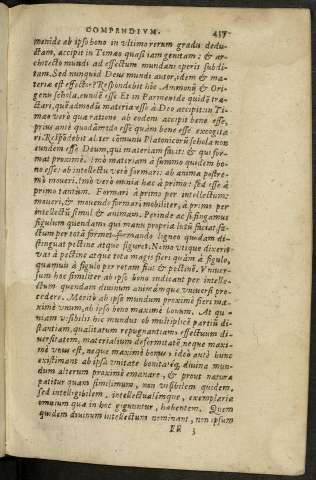 COMPENDIVM. 437
menide ab ipso bono in vltimo rerum gradu dedu-
ctam, accipit in Timæo quasi iam genitam: & ar-
chitecto mundi ad effectum mundani operis subdi-
tam. Sed nunquid Deus mundi autor, idem & ma-
teriæ est effector? Respondebit hôc Ammonij & Ori-
genis schola, eundẽ esse. Et in Parmenide quidẽ tra-
ctari, quẽadmodũ materia esse à Deo accipit: in Ti-
mæo verò qua ratione ab eodem accipit bene esse,
prius ante quodãmodo esse quàm bene esse excogita
ri. Respõdebit alter cõmunis Platonicorũ schola non
eundem esse Deum, qui materiam fecit: & qui for-
mat proximè. Imò materiam à summo quidem bo-
no esse: ab intellectu verò formari: ab anima postre-
mò moueri. Imò verò omnia hæc à primo: sed esse à
primo tantùm. Formari à primo per intellectum:
moueri, & mouendo formari mobiliter, à primo per
intellectũ simul & animam. Perinde ac si fingamus
figulum quendam qui manu propria lutũ faciat fa-
ctum per rotã formet: formando ligneo quodam di-
stinguat pectine atque figuret. Nemo vtique dixerit
vas à pectine atque rota magis fieri quàm à figulo,
quamuis à figulo per rotam fiat & pectinẽ. Vniuer-
sum hoc similiter ab ipso bono indicant per intelle-
ctum quendam diuinum animámque vniuersi pro-
cedere. Meritò ab ipso mundum proximè fieri ma-
ximè vnum, ab ipso bono maximè bonum. At quo-
niam visibilis hic mundus ob multiplicẽ partiũ di-
stantiam, qualitatum repugnantiam, effectuum di-
uersitatem, materialium deformitatẽ neque maxi-
mè vnus est, neque maximè bonus: ideò ante hunc
existimant ab ipsa vnitate bonitatéq; diuina mun-
dum alterum proximè emanare, & prout natura
patitur quàm simillimum, non visibilem quidem,
sed intelligibilem, intellectualémque, exemplaria
omnium quæ in hoc gignuntur, habentem. Quem
quidem diuinum intellectum nominant, non ipsum
EE 3